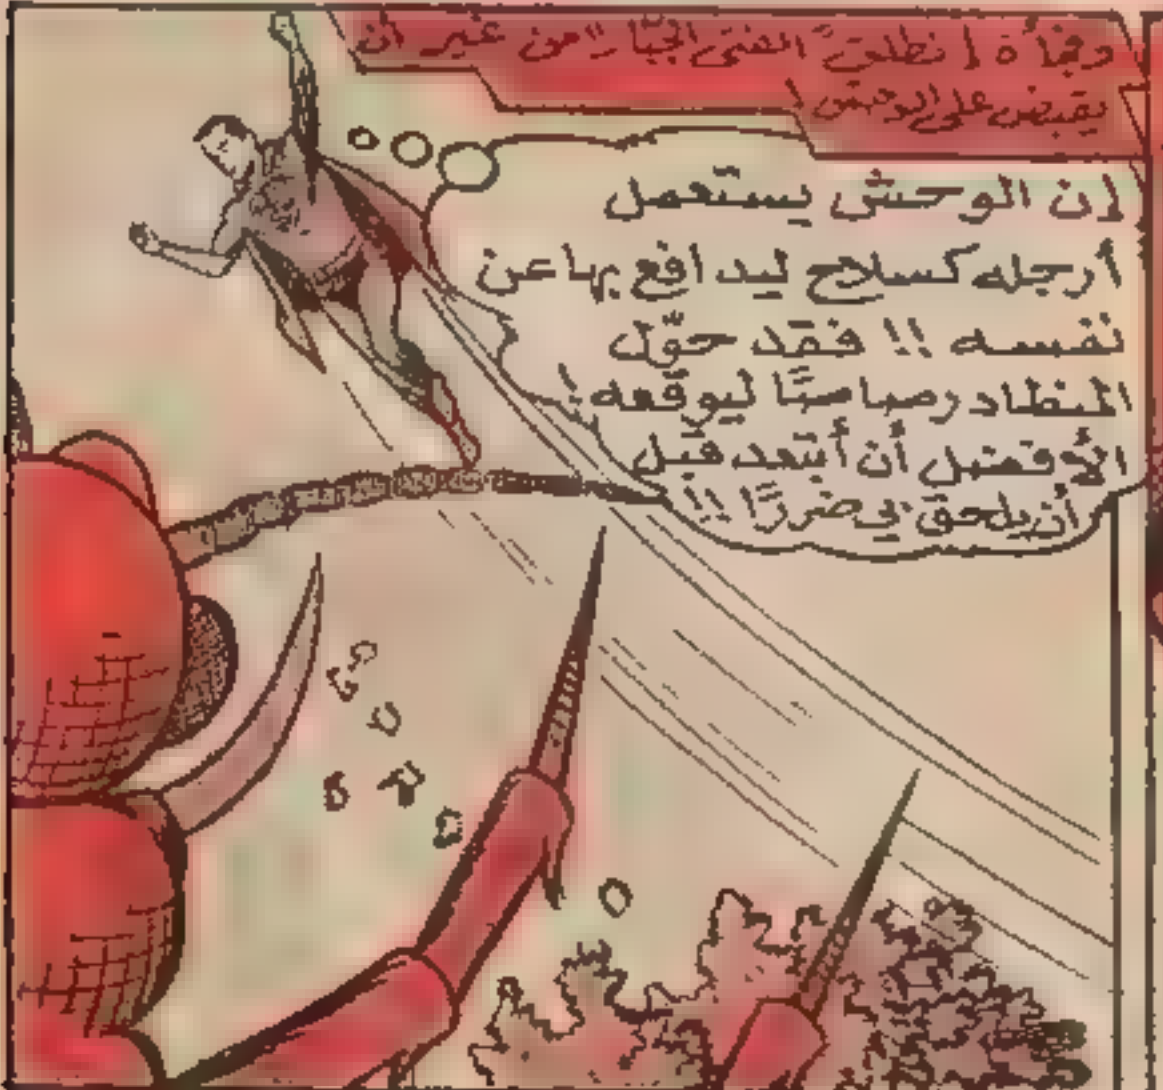 وفجأة انطلق الفتى الجبّار من غير أن
يقبض على الوحش!
إن الوحش يستعمل
أرجله كسلاح ليدافع بها عن
نفسه !! فقد حوّل
المنطاد رصاصًا ليوقعه!
الأفضل أن أبتعد قبل
أن يلحق بي ضررًا !!